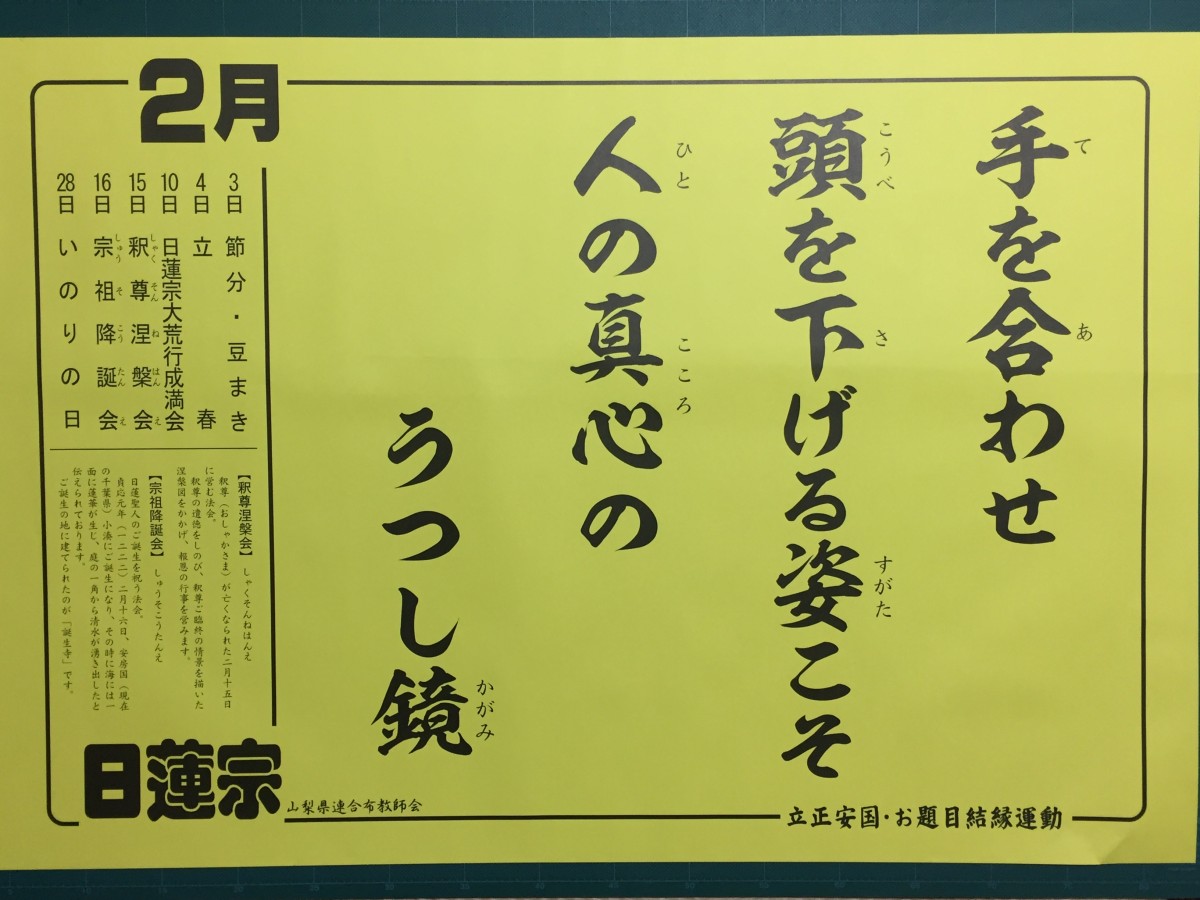 手を合わせ
頭を下げる姿こそ
人の真心の
うつし鏡
て
あ
こうべ
さ
すがた
ひと
こころ
かがみ
2月
3日 節分・豆まき
4日 立春
10日 日蓮宗大荒行成満会
15日 釈尊涅槃会
しゃくそんねはんえ
16日 宗祖降誕会
しゅうそこうたんえ
28日 いのりの日
【釈尊涅槃会】 しゃくそんねはんえ
釈尊(おしゃかさま)が亡くなられた二月十五日
に営む法会。
釈尊の遺徳をしのび、釈尊ご臨終の情景を描いた
涅槃図をかかげ、報恩の行事を営みます。
【宗祖降誕会】 しゅうそこうたんえ
日蓮聖人のご誕生を祝う法会。
貞応元年(一二二二)二月十六日、安房国(現在
の千葉県)小湊にご誕生になり、その時に海には一
面に蓮華が生じ、庭の一角から清水が湧き出したと
伝えられております。
ご誕生の地に建てられたのが「誕生寺」です。
日蓮宗
山梨県連合布教師会
立正安国・お題目結縁運動